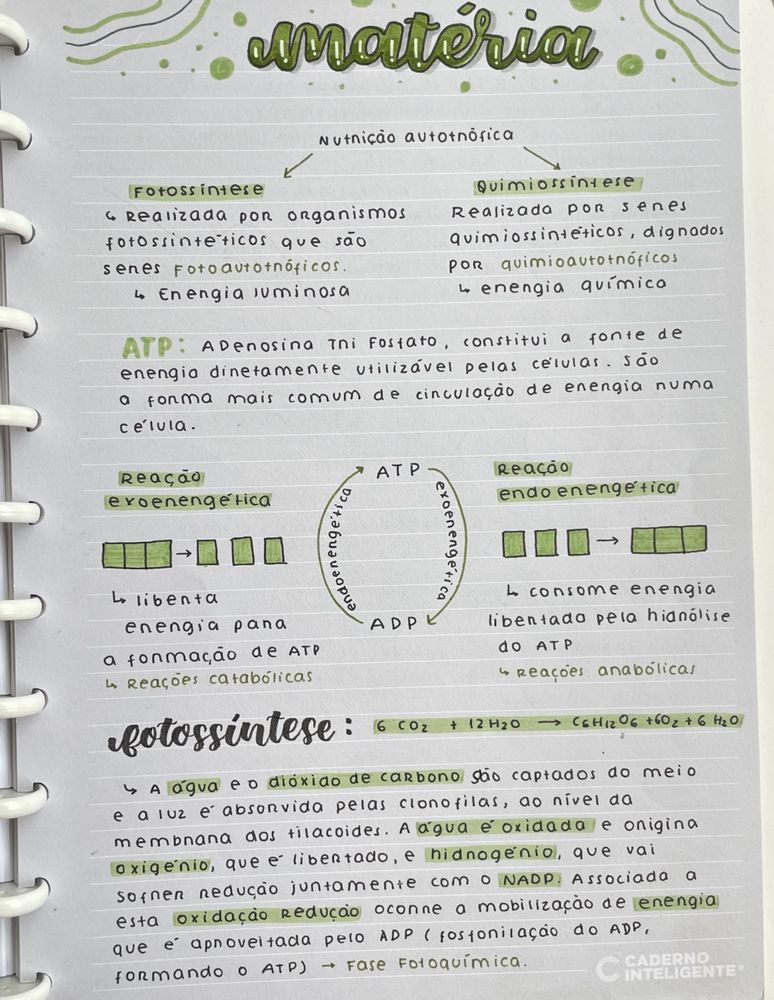 matéria
Nutrição autotrófica
Fotossíntese
↳ Realizada por organismos
fotossintéticos que são
seres Fotoautotróficos.
↳ Energia luminosa
Quimiossíntese
Realizada por seres
quimiossintéticos, dignados
por quimioautotróficos
↳ energia química
ATP: Adenosina Tri Fosfato, constitui a fonte de
energia diretamente utilizável pelas células. São
a forma mais comum de circulação de energia numa
célula.
Reação
exoenergética
→
↳ liberta
energia para
a formação de ATP
↳ Reações catabólicas
ATP
endoenergética
exoenergética
ADP
Reação
endoenergética
→
↳ consome energia
libertada pela hidrólise
do ATP
↳ Reações anabólicas
fotossíntese: 6 CO2 + 12H2O → C6H12O6 +6O2 + 6 H2O
↳ A água e o dióxido de carbono são captados do meio
e a luz é absorvida pelas clorofilas, ao nível da
membrana dos tilacoides. A água é oxidada e origina
oxigénio, que é libertado, e hidrogénio, que vai
sofrer redução juntamente com o NADP. Associada a
esta oxidação redução ocorre a mobilização de energia
que é aproveitada pelo ADP (fosforilação do ADP,
formando o ATP) → Fase Fotoquímica.
CADERNO
INTELIGENTE®